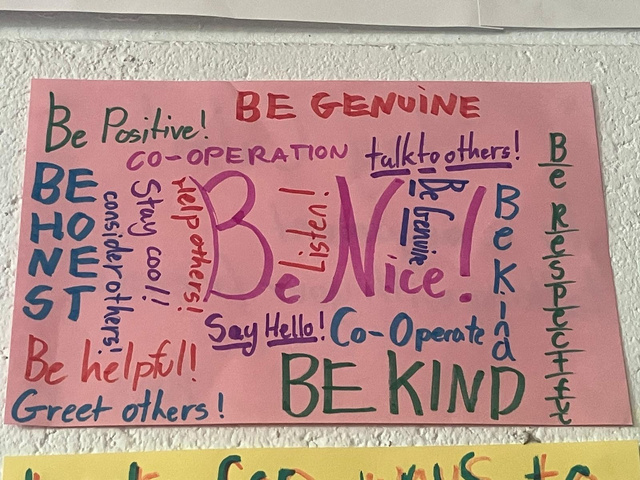 BE GENUINE
Be Positive!
CO-OPERATION
talk to others!
Be Respectful
BE
HO
NE
ST
consider others!
Stay cool!!
Help others!
Be Nice!
Listen!
Be Genuine
Be Kind
Say Hello!
Co-Operate
Be helpful!
BE KIND
Greet others!
ways to